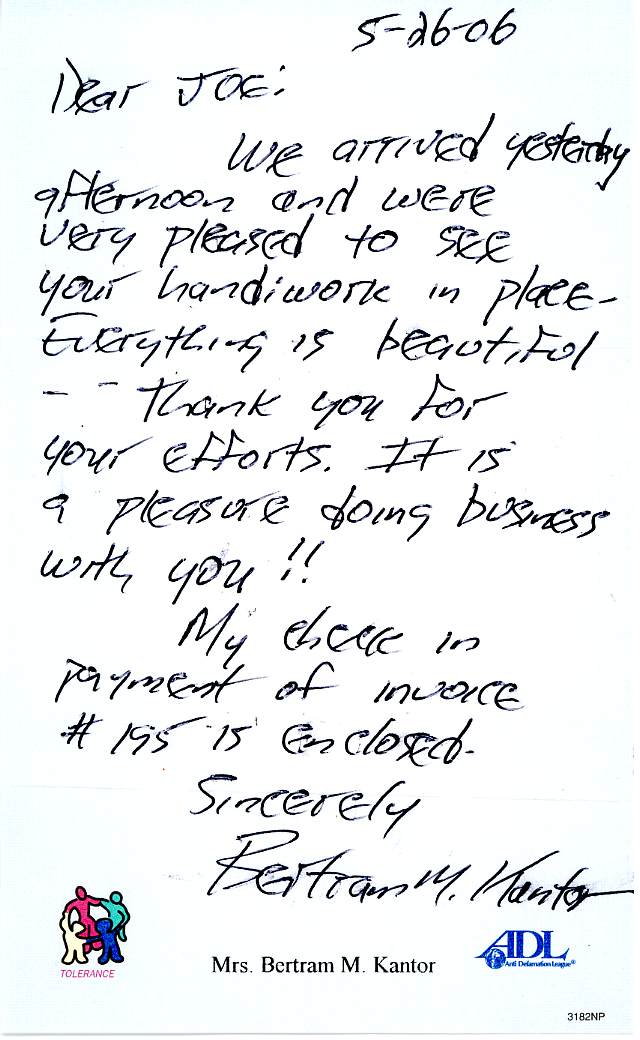 5-26-06
Dear Joe:
We arrived yesterday
afternoon and were
very pleased to see
your handiwork in place-
Everything is beautiful
-- Thank you for
your efforts. It is
a pleasure doing business
with you!!
My check in
payment of invoice
# 195 is enclosed.
Sincerely
Bertram M. Kantor
TOLERANCE
Mrs. Bertram M. Kantor
ADL
Anti-Defamation League®
3182NP